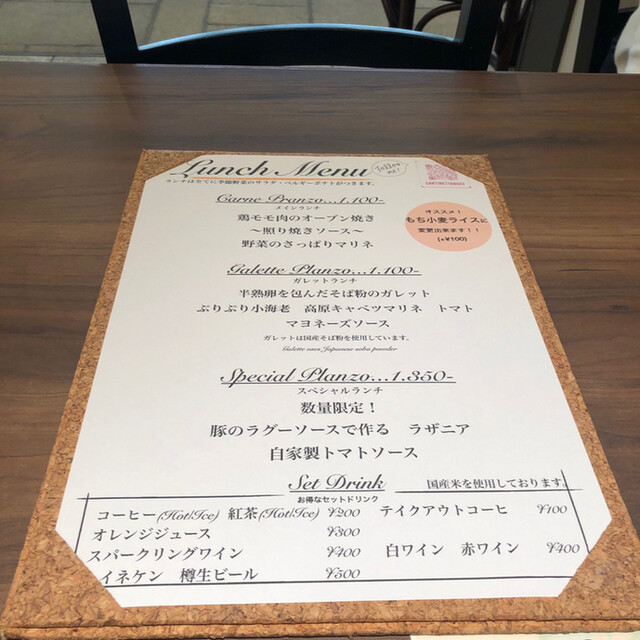 Lunch Menu
Follow me!
ランチは全てに季節野菜のサラダ・ベルギーポテトがつきます。
Carne Pranzo...1,100-
メインランチ
鶏モモ肉のオーブン焼き
〜照り焼きソース〜
野菜のさっぱりマリネ
オススメ！
もち小麦ライスに
変更出来ます！！
(+¥100)
Galette Planzo...1,100-
ガレットランチ
半熟卵を包んだそば粉のガレット
ぷりぷり小海老 高原キャベツマリネ トマト
マヨネーズソース
ガレットは国産そば粉を使用しています。
Galette uses Japanese soba powder
Special Planzo...1.350-
スペシャルランチ
数量限定！
豚のラグーソースで作る ラザニア
自家製トマトソース
Set Drink
国産米を使用しております。
お得なセットドリンク
コーヒー(Hot/Ice) 紅茶(Hot/Ice) ¥200 テイクアウトコーヒ ¥100
オレンジジュース ¥300
スパークリングワイン ¥400 白ワイン 赤ワイン ¥400
イネケン 樽生ビール ¥500